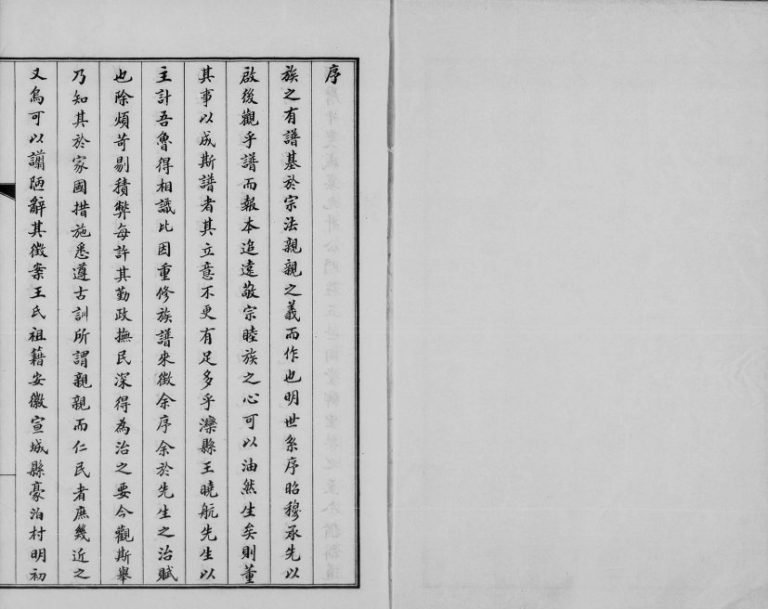 序
族之有譜基於宗法親親之義而作也明世系序昭穆承先以
啟後觀乎譜而報本追遠敬宗睦族之心可以油然生矣則董
其事以成斯譜者其立意不更有足多乎灤縣王曉航先生以
主計吾魯得相識比因重修族譜來徵余序余於先生之治賦
也除煩苛剔積弊每許其勤政撫民深得為治之要今觀斯舉
乃知其於家國措施悉遵古訓所謂親親而仁民者庶幾近之
又烏可以譾陋辭其徵案王氏祖籍安徽宣城縣豪泊村明初